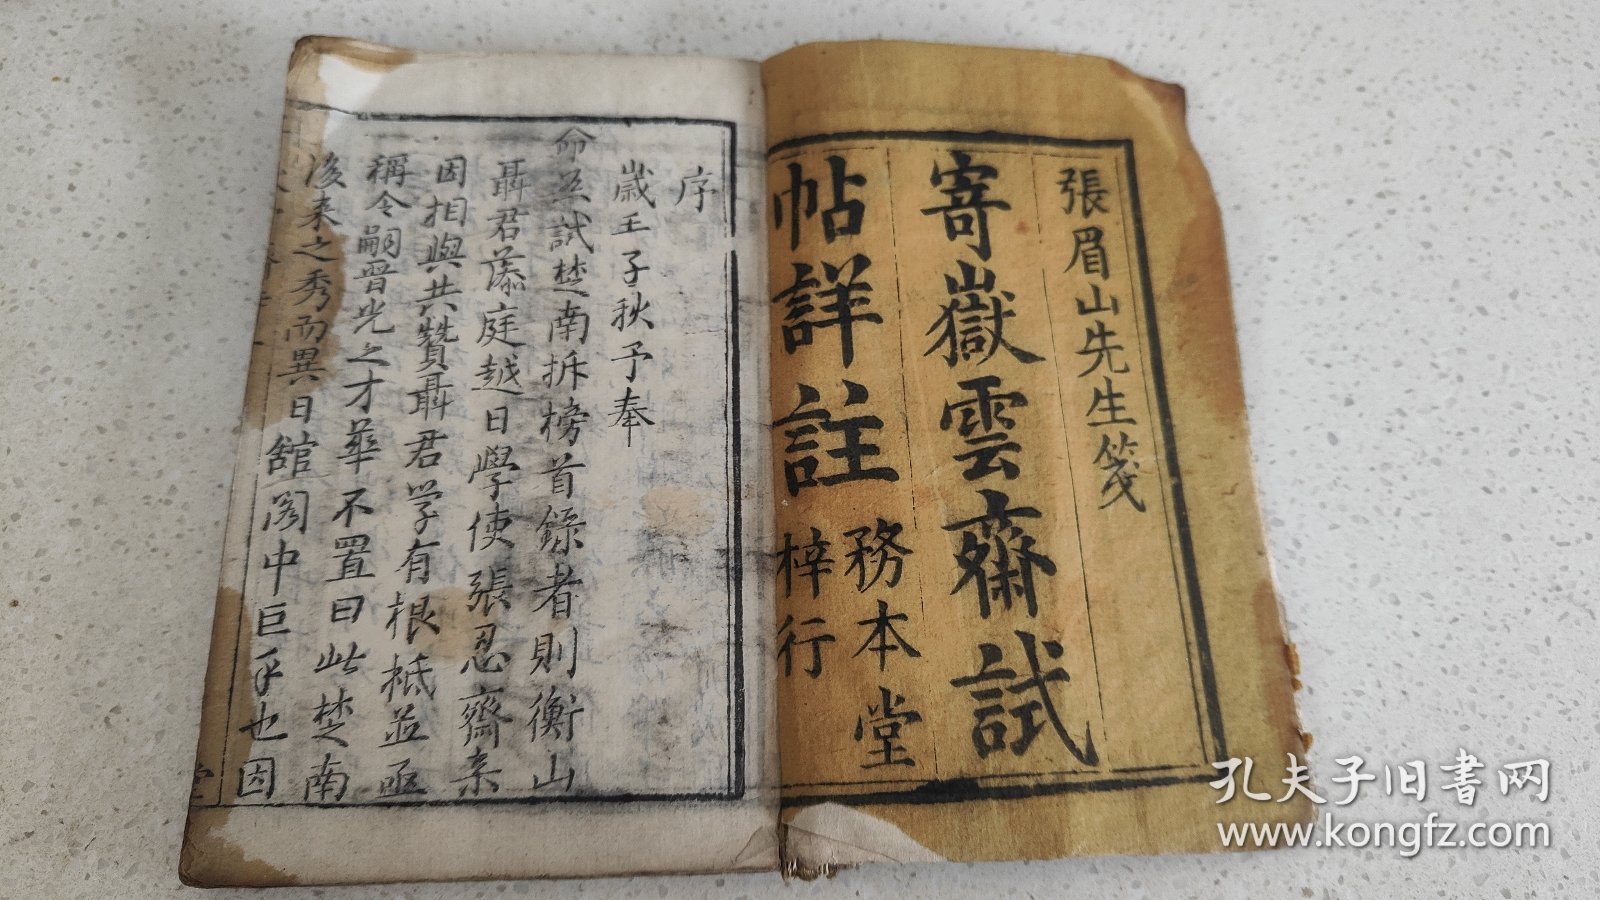 張眉山先生箋
寄嶽雲齋試
帖詳註
務本堂
梓行
序
歲壬子秋予奉
命典試楚南拆榜首錄者則衡山
聶君蓉庭越日學使張忍齋亲
因相與共贊聶君学有根柢並亟
稱令嗣晋光之才華不置曰此楚南
後来之秀而異日舘阁中巨手也因
堂
孔夫子旧書网
www.kongfz.com